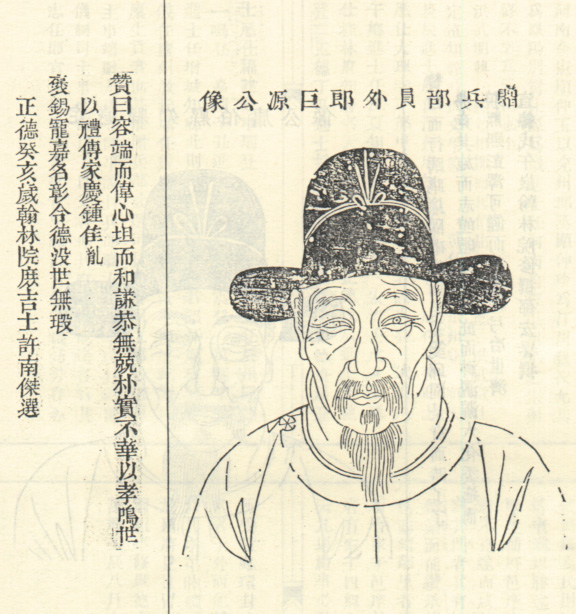 贈兵部員外郎巨源公像
贊曰容端而偉心坦而和謙恭無兢朴實不華以孝鳴世
以禮傳家慶鍾佳胤
褒錫寵嘉名彰令德没世無瑕
正德癸亥歲翰林院庶吉士許南傑選